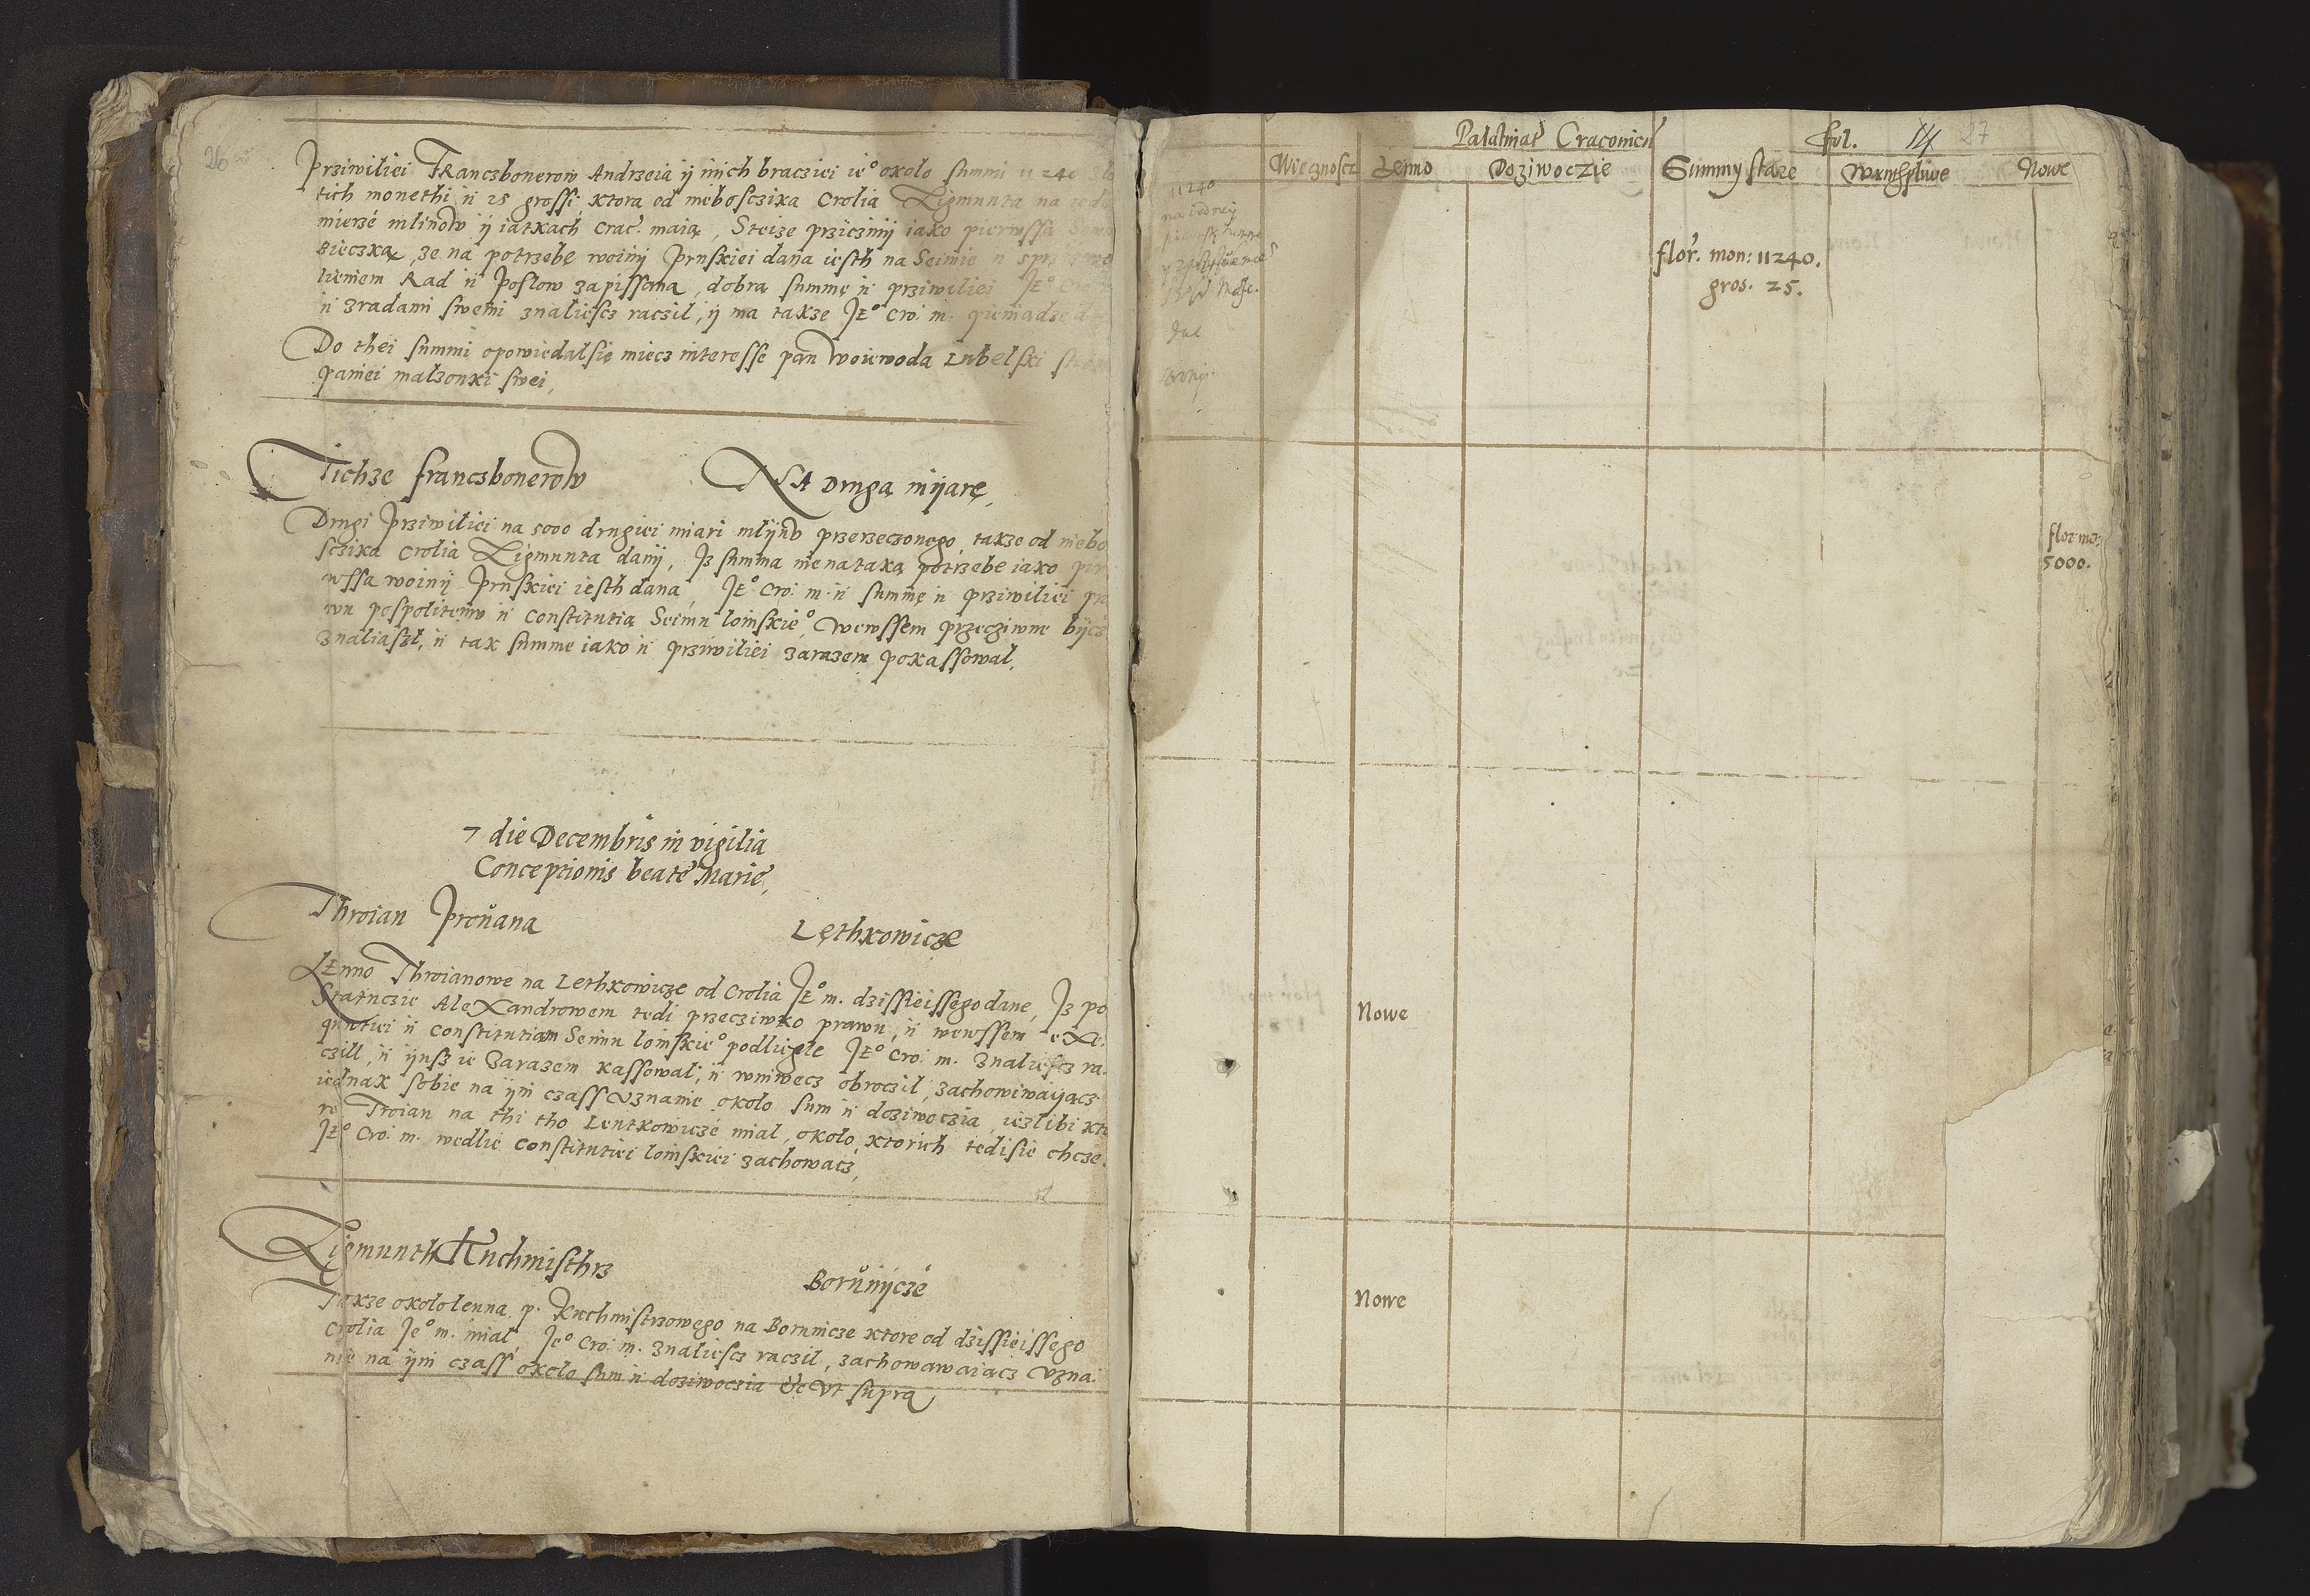 26
Prziwiliei Franczbonerow Andrzeia ÿ inich bracziei ie° okolo summi 11240 zło
tich monethi ÿ 25 grossi, ktora od nieboscżika Crolia Zigmunta na iedn
mierze mlinow ÿ iatkach Crac. maią, Steize prziczinÿ iako pierwssa Summ
Bieczka, ze na potrzebę woinÿ Pruskiei dana iesth na Seimie
lieniem Rad ÿ Posłow zapissana, dobra summę ÿ prziwiliei JE°
ÿ zradami swemi znaliescz raczil, ÿ ma takze JE° Cro: m.
Do thei summi opowiedalsię miecz interesse pan Woiewoda Lubelski
paniei malzonki swei,
Tichze Franczbonerow Na drugą mÿarę,
Drugi Prziwiliei na 5000 drugiei miari mlÿnow przerzeczonego, takze od niebo
sczika Crolia Zigmunta danÿ, Jz summa nie nataką potrzebe iako pir
wssa woinÿ Pruskiei iesth dana, JE° Cro: m. ÿ summę ÿ prziwiliei pra
wu pospolitemu ÿ Constitutią Seimu lomskie° wewssem przecziwne bÿcz
znaliaszł, ÿ tak summę iako ÿ prziwiliei zarazem pokassowal,
7 die Decembris in vigilia
Conceptionis beatę Marię,
Throian Prouana Lęthkowicze
LEnno Throianowe na Lethkowicze od Crolia JE° m. dzissieissego dane, Jz po
Statuczie Alexandrowem tedi przecziwko prawu, ÿ wewssem exe.
qutiei ÿ Constitutiam Seimu lomskie° podliegłe JE° Cro: m. Znaliescz ra.
czill, ÿ ÿusz ie Zarazem kassowal, ÿ wniwecz obroczil, zachowiwaÿącz
iednak sobie na ÿni czass Uznanie około sum ÿ doziwoczia, iezlibi kto
re Troian na thi tho Lentkowicze mial, około ktorich tedisie chcze
JE° Cro: m. wedlie Constitutiei lomskiei zachowacz,
Zigmunth Kuchmisthrz Borunÿcze
Takze okolo lenna p. Kuchmistrzowego na Borunicze ktore od dzissieissego
Crolia Je° m. mial, Je° Cro: m. znaliescz raczil, zachowawaiącz Uzna.
nie na ÿni czass około sum ÿ doziwoczia &c Ut supra
Palatinat Cracovien fol. 14 27
Wiecznoscz Lenno Doziwoczie Summy stare Nowe
11240
na iedneÿ
flor. mon: 11240.
gros. 25.
flor mo:
5000.
Nowe
Nowe